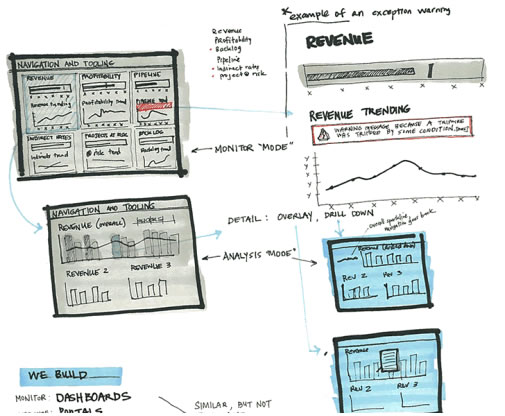 * example of an exception warning
Revenue
Profitability
• Backlog
Pipeline
• Indirect rates
• projects @ risk
REVENUE
NAVIGATION AND TOOLING
REVENUE
PROFITABILITY
PIPELINE
Revenue trending
Profitability trend
Pipeline trend
INDIRECT RATES
PROJECTS AT RISK
BACK LOG
trend
@ risk trend
Backlog trend
REVENUE TRENDING
WARNING MESSAGE BECAUSE A TRIPWIRE
WAS TRIPPED BY SOME CONDITION.
MONITOR "MODE"
Y
Y
Y
Y
X X X X X X X
NAVIGATION AND TOOLING
REVENUE (OVERALL)
REVENUE 2
REVENUE 3
DETAIL: OVERLAY, DRILL DOWN
ANALYSIS "MODE"
Rev 2
Rev 3
Revenue
Rev 2
Rev 3
WE BUILD
MONITOR: DASHBOARDS
PORTALS
SIMILAR, BUT NOT